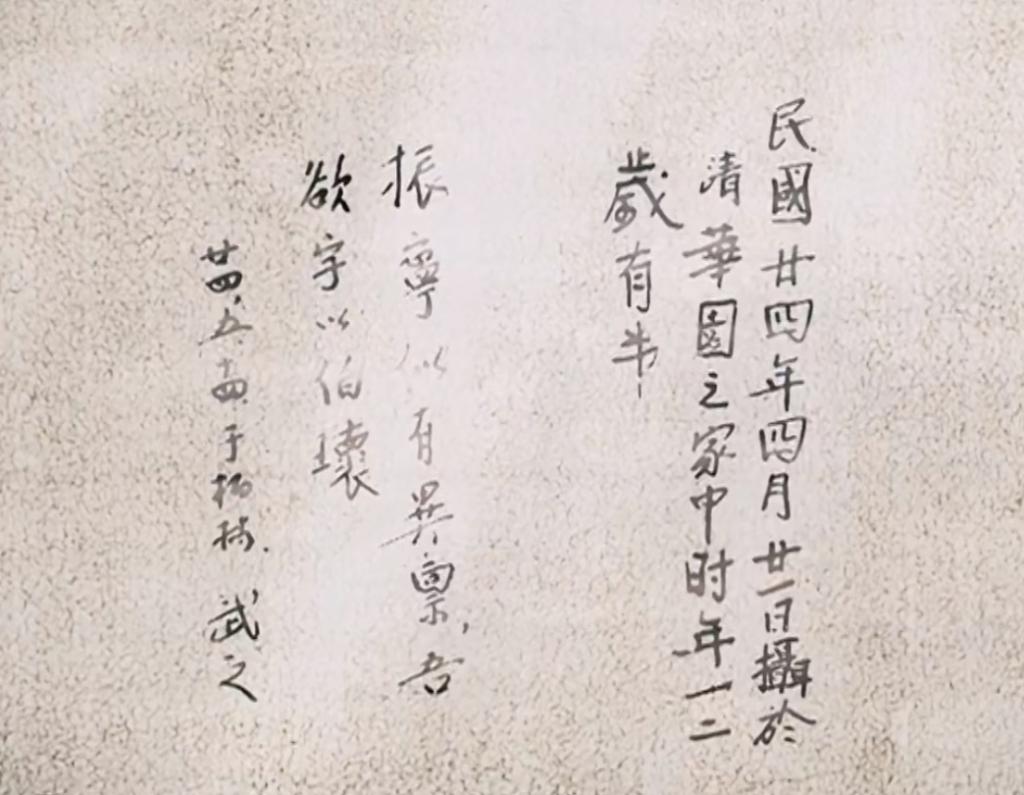 民國廿四年四月廿一日攝於
清華園之家中时年一二
歲有半
振寧似有異稟,吾
欲字以伯瓌
廿四,五,廿四于柏林. 武之